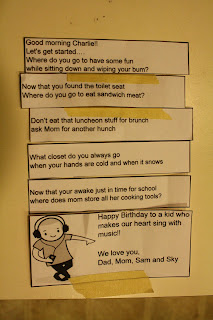 Good morning Charlie!!
Let's get started....
Where do you go to have some fun
while sitting down and wiping your bum?
Now that you found the toilet seat
Where do you go to eat sandwich meat?
Don't eat that luncheon stuff for brunch
ask Mom for another hunch
What closet do you always go
when your hands are cold and when it snows
Now that your awake just in time for school
where does mom store all her cooking tools?
Happy Birthday to a kid who
makes our heart sing with
music!!
We love you,
Dad, Mom, Sam and Sky